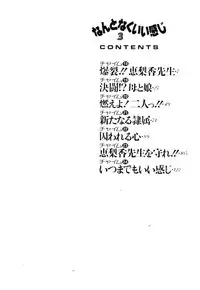 なんとなくいい感じ
3
CONTENTS
チャイム
爆裂!! 恵梨香先生
チャイム
決闘!? 母と娘
チャイム
燃えよ! 二人っ!!
チャイム
新たなる隷属
チャイム
囚われる心
チャイム
恵梨香先生を守れ!!
チャイム
いつまでもいい感じ